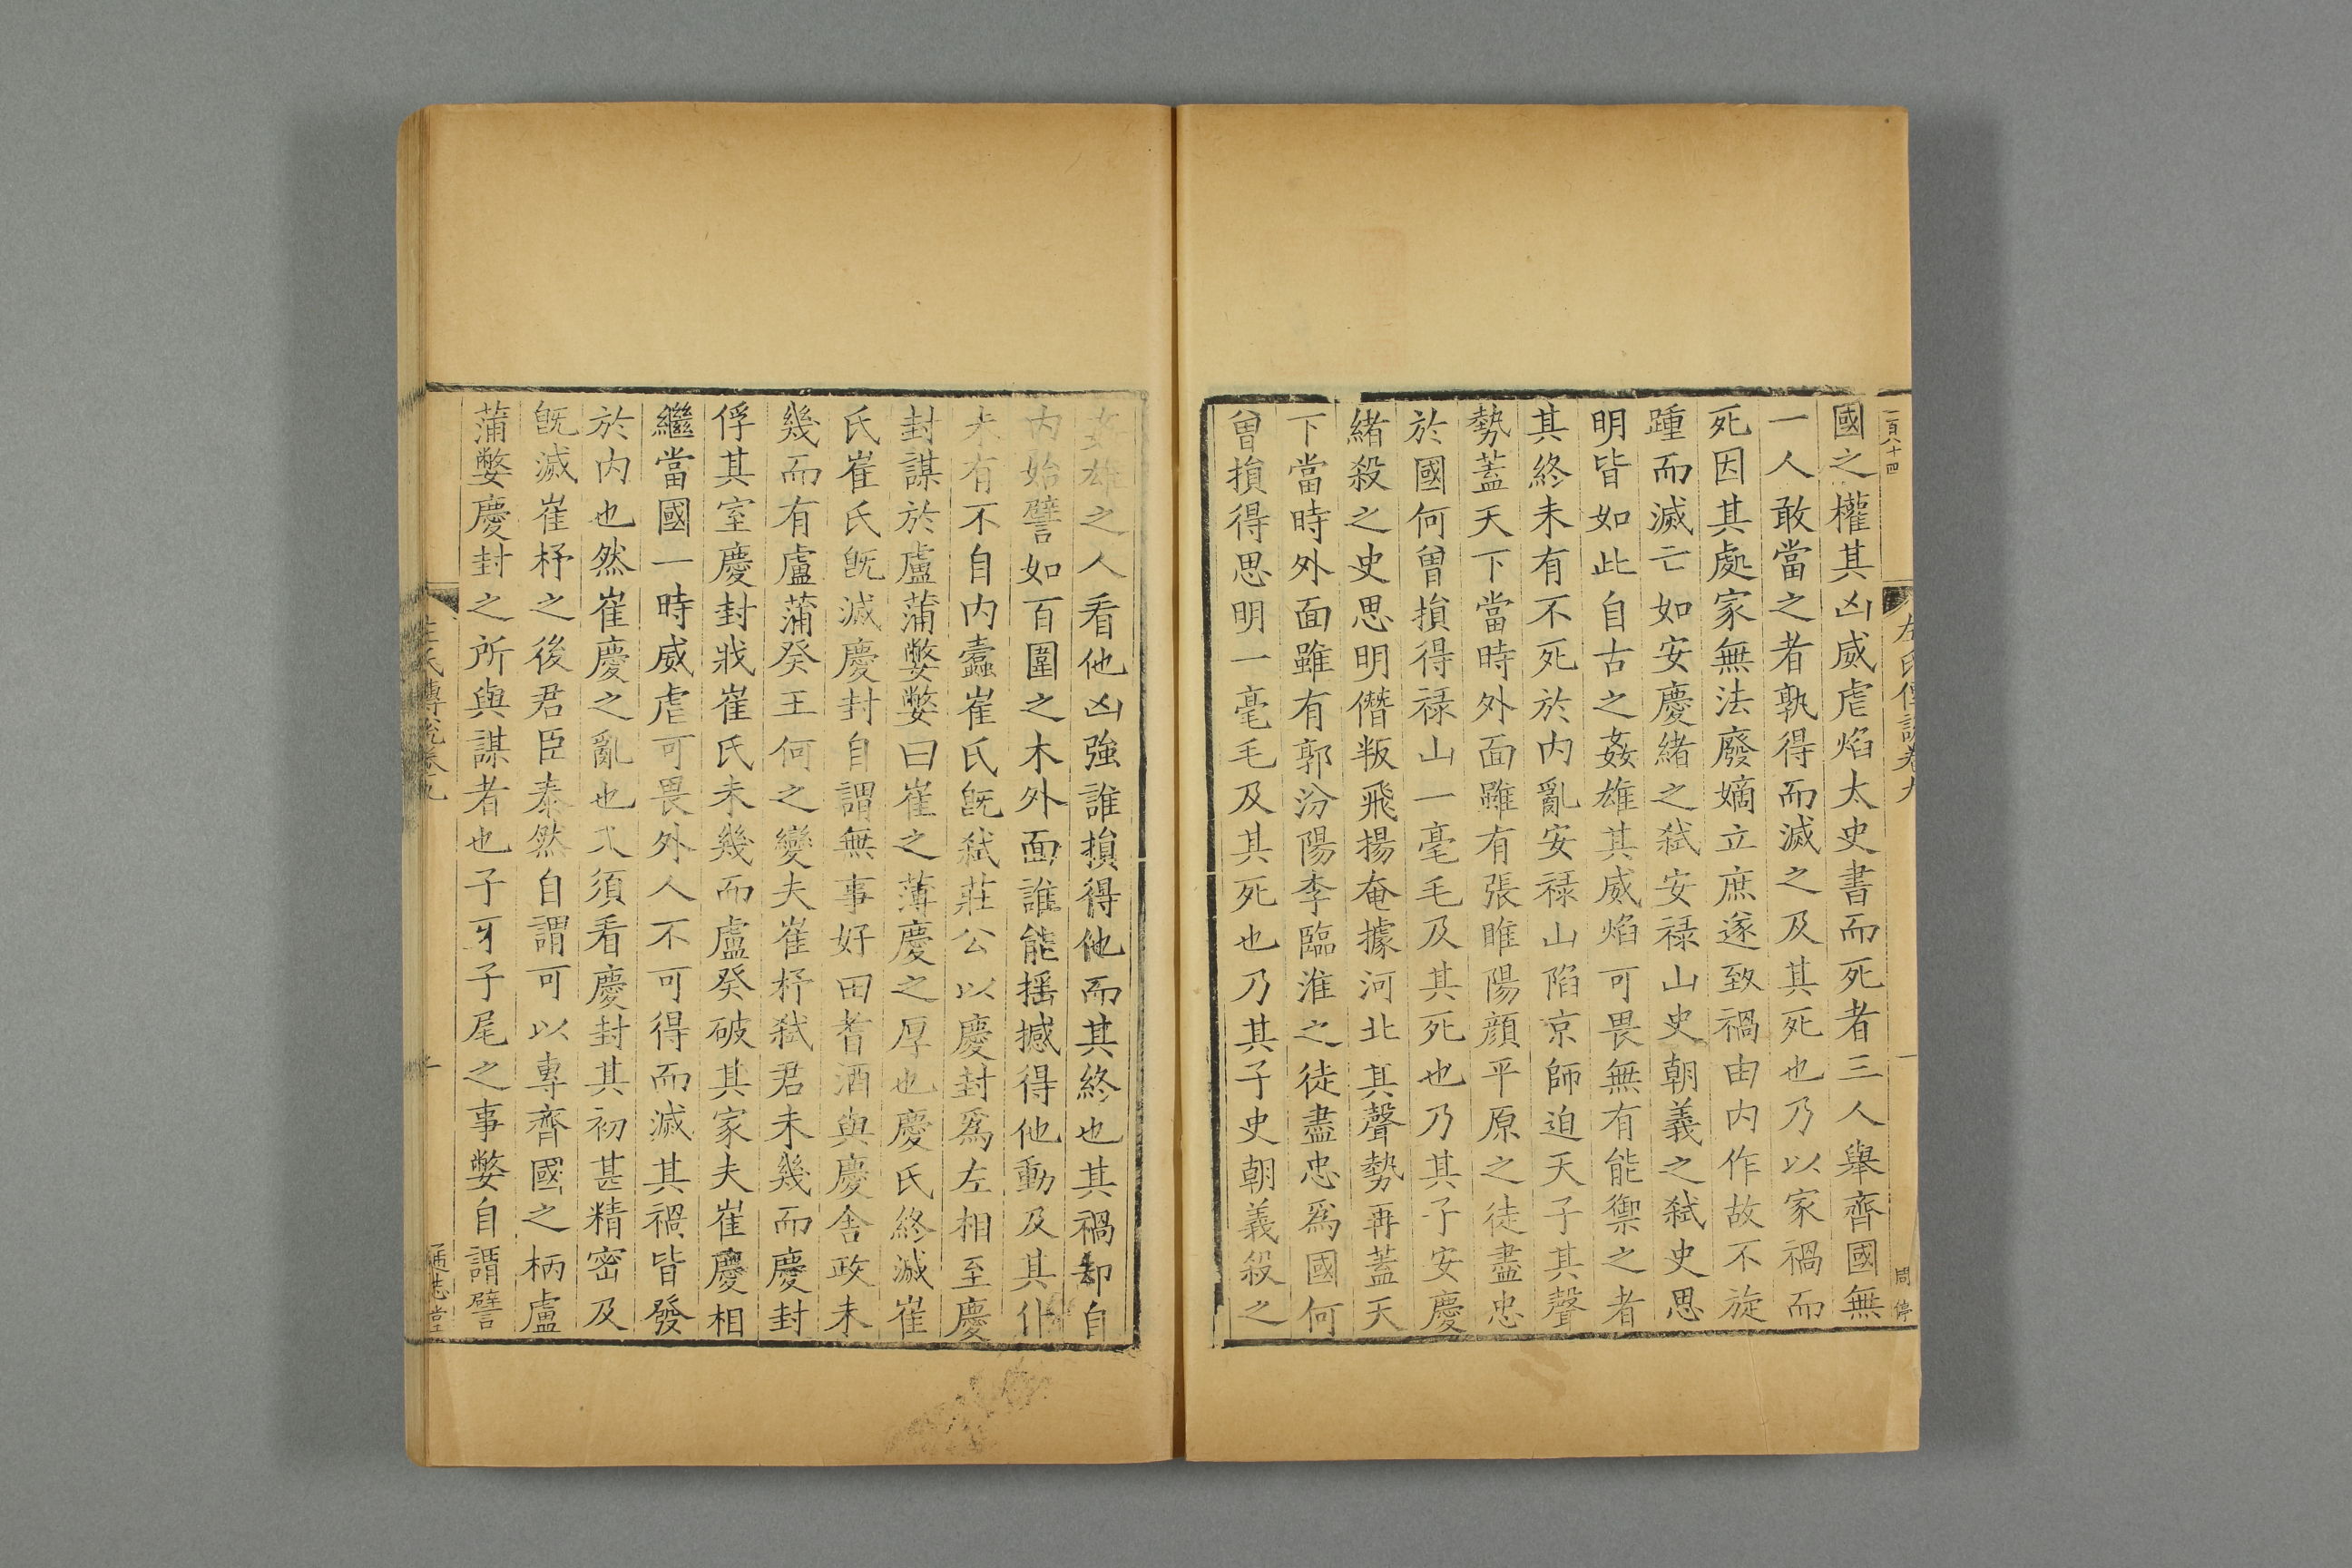 二百八十四
左氏傳說卷九
一
周 停
國之權其凶威虐焰太史書而死者三人舉齊國無
一人敢當之者孰得而滅之及其死也乃以家禍而
死因其處家無法廢嫡立庶遂致禍由内作故不旋
踵而滅亡如安慶緒之弑安禄山史朝義之弑史思
明皆如此自古之姦雄其威焰可畏無有能禦之者
其終未有不死於内亂安禄山陷京師迫天子其聲
勢蓋天下當時外面雖有張睢陽顔平原之徒盡忠
於國何曾損得禄山一毫毛及其死也乃其子安慶
緒殺之史思明僭叛飛揚奄據河北其聲勢再蓋天
下當時外面雖有郭汾陽李臨淮之徒盡忠爲國何
曾損得思明一毫毛及其死也乃其子史朝義殺之
雄之人看他凶強誰損得他而其終也其禍却自
内始譬如百圍之木外面誰能揺撼得他動及其仆
未有不自内蠧崔氏既弑莊公以慶封爲左相至慶
封謀於盧蒲嫳嫳曰崔之薄慶之厚也慶氏終滅崔
氏崔氏既滅慶封自謂無事好田耆酒與慶舍政未
幾而有盧蒲癸王何之變夫崔杼弑君未幾而慶封
俘其室慶封戕崔氏未幾而盧癸破其家夫崔慶相
繼當國一時威虐可畏外人不可得而滅其禍皆發
於内也然崔慶之亂也又須看慶封其初甚精密及
既滅崔杼之後君臣泰然自謂可以專齊國之柄盧
蒲嫳慶封之所與謀者也子牙子尾之事嫳自謂譬
左氏傳說卷九
通志堂